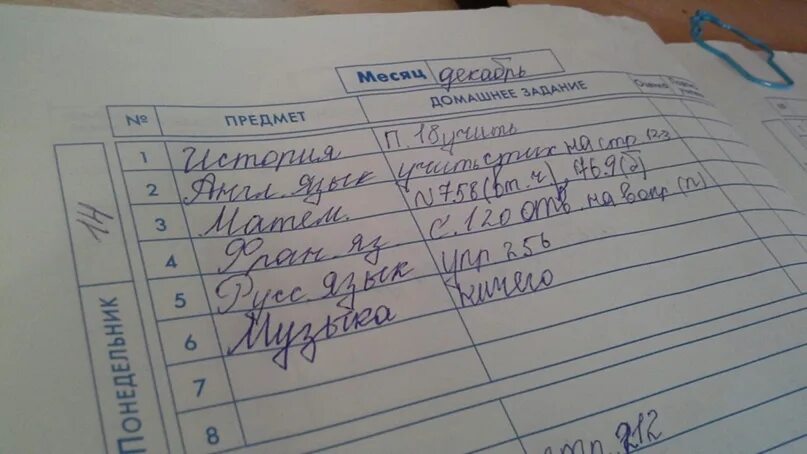 Месяц декабрь
№ ПРЕДМЕТ ДОМАШНЕЕ ЗАДАНИЕ Оценка
14
ПОНЕДЕЛЬНИК
1 История П. 18 учить
2 Англ. язык учить стих на стр 123
3 Матем. N 758 (вт. ч), 769(2)
4 Фран. яз. с. 120 отв. на вопр (п)
5 Русс. язык упр 256
6 Музыка ничего
7
8
стр. 212